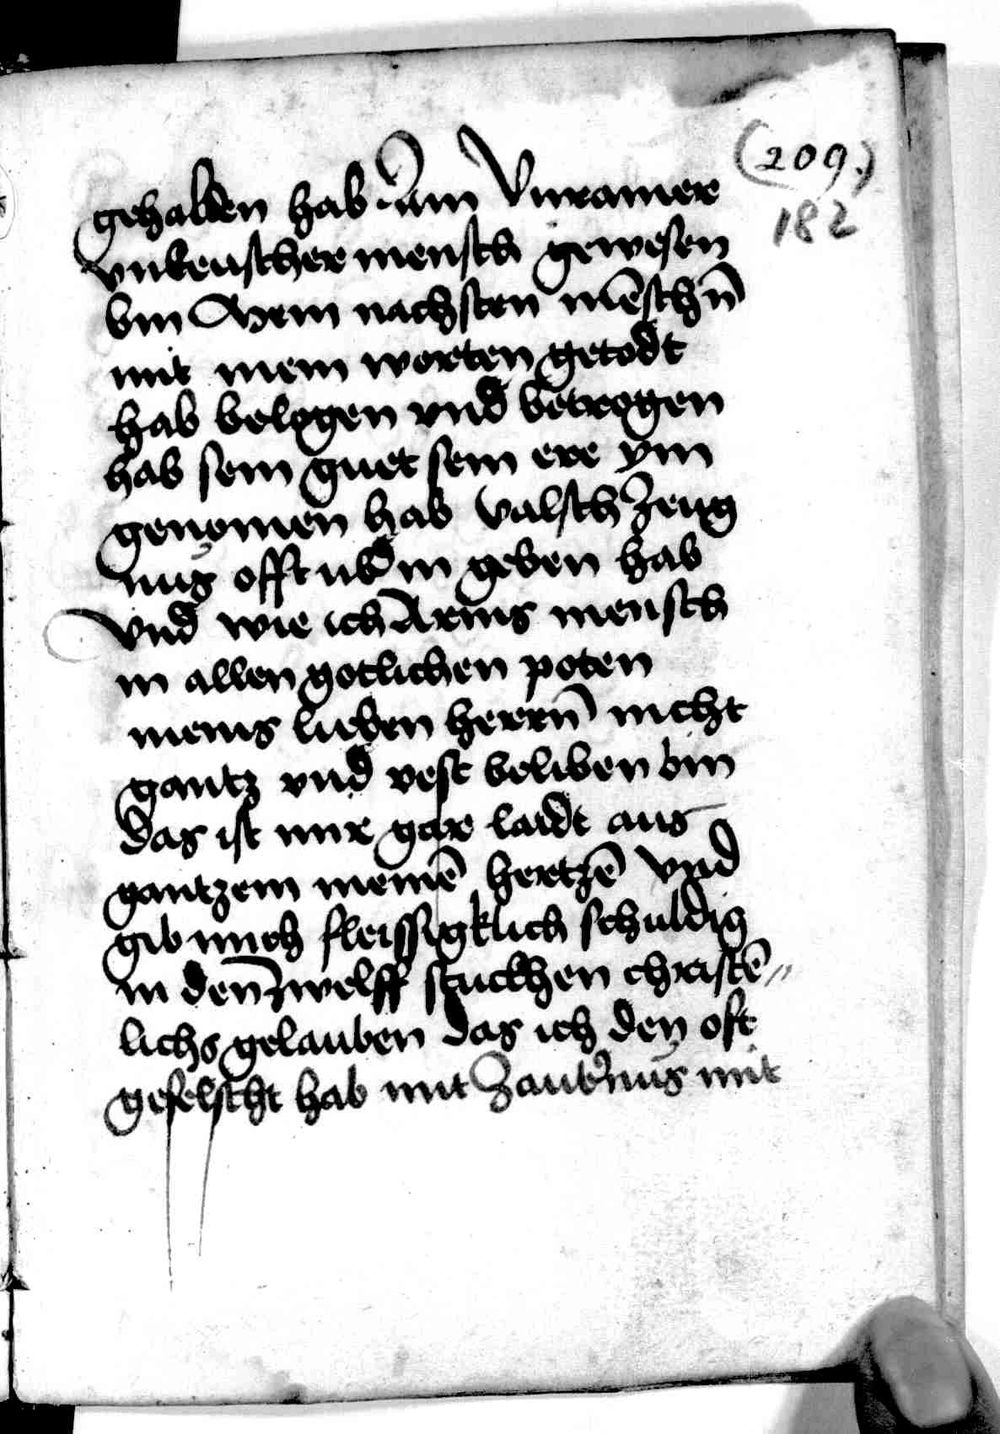 (209.)
182
gehalden hab ain Vnramer
vnkeuscher mensch gewesen
bin Mein nachsten mēschn̄
mit mein worten getodt
hab belogen vnd betrogen
hab sein guet sein ere ym
genomen hab valsch zeug
nus offt ub in geben hab
vnd wie ich Arms mensch
in allen gotlichen poten
meins lieben herrn̄ nicht
gantz vnd vest beliben bin
das ist mir gar laidt aus
gantzem meinē hertzē vnd
gib mich fleissigklich schuldig
in den zwelff stuckhen christē〃
lichs gelauben das ich den oft
gefelscht hab mit Zaubrnus mit